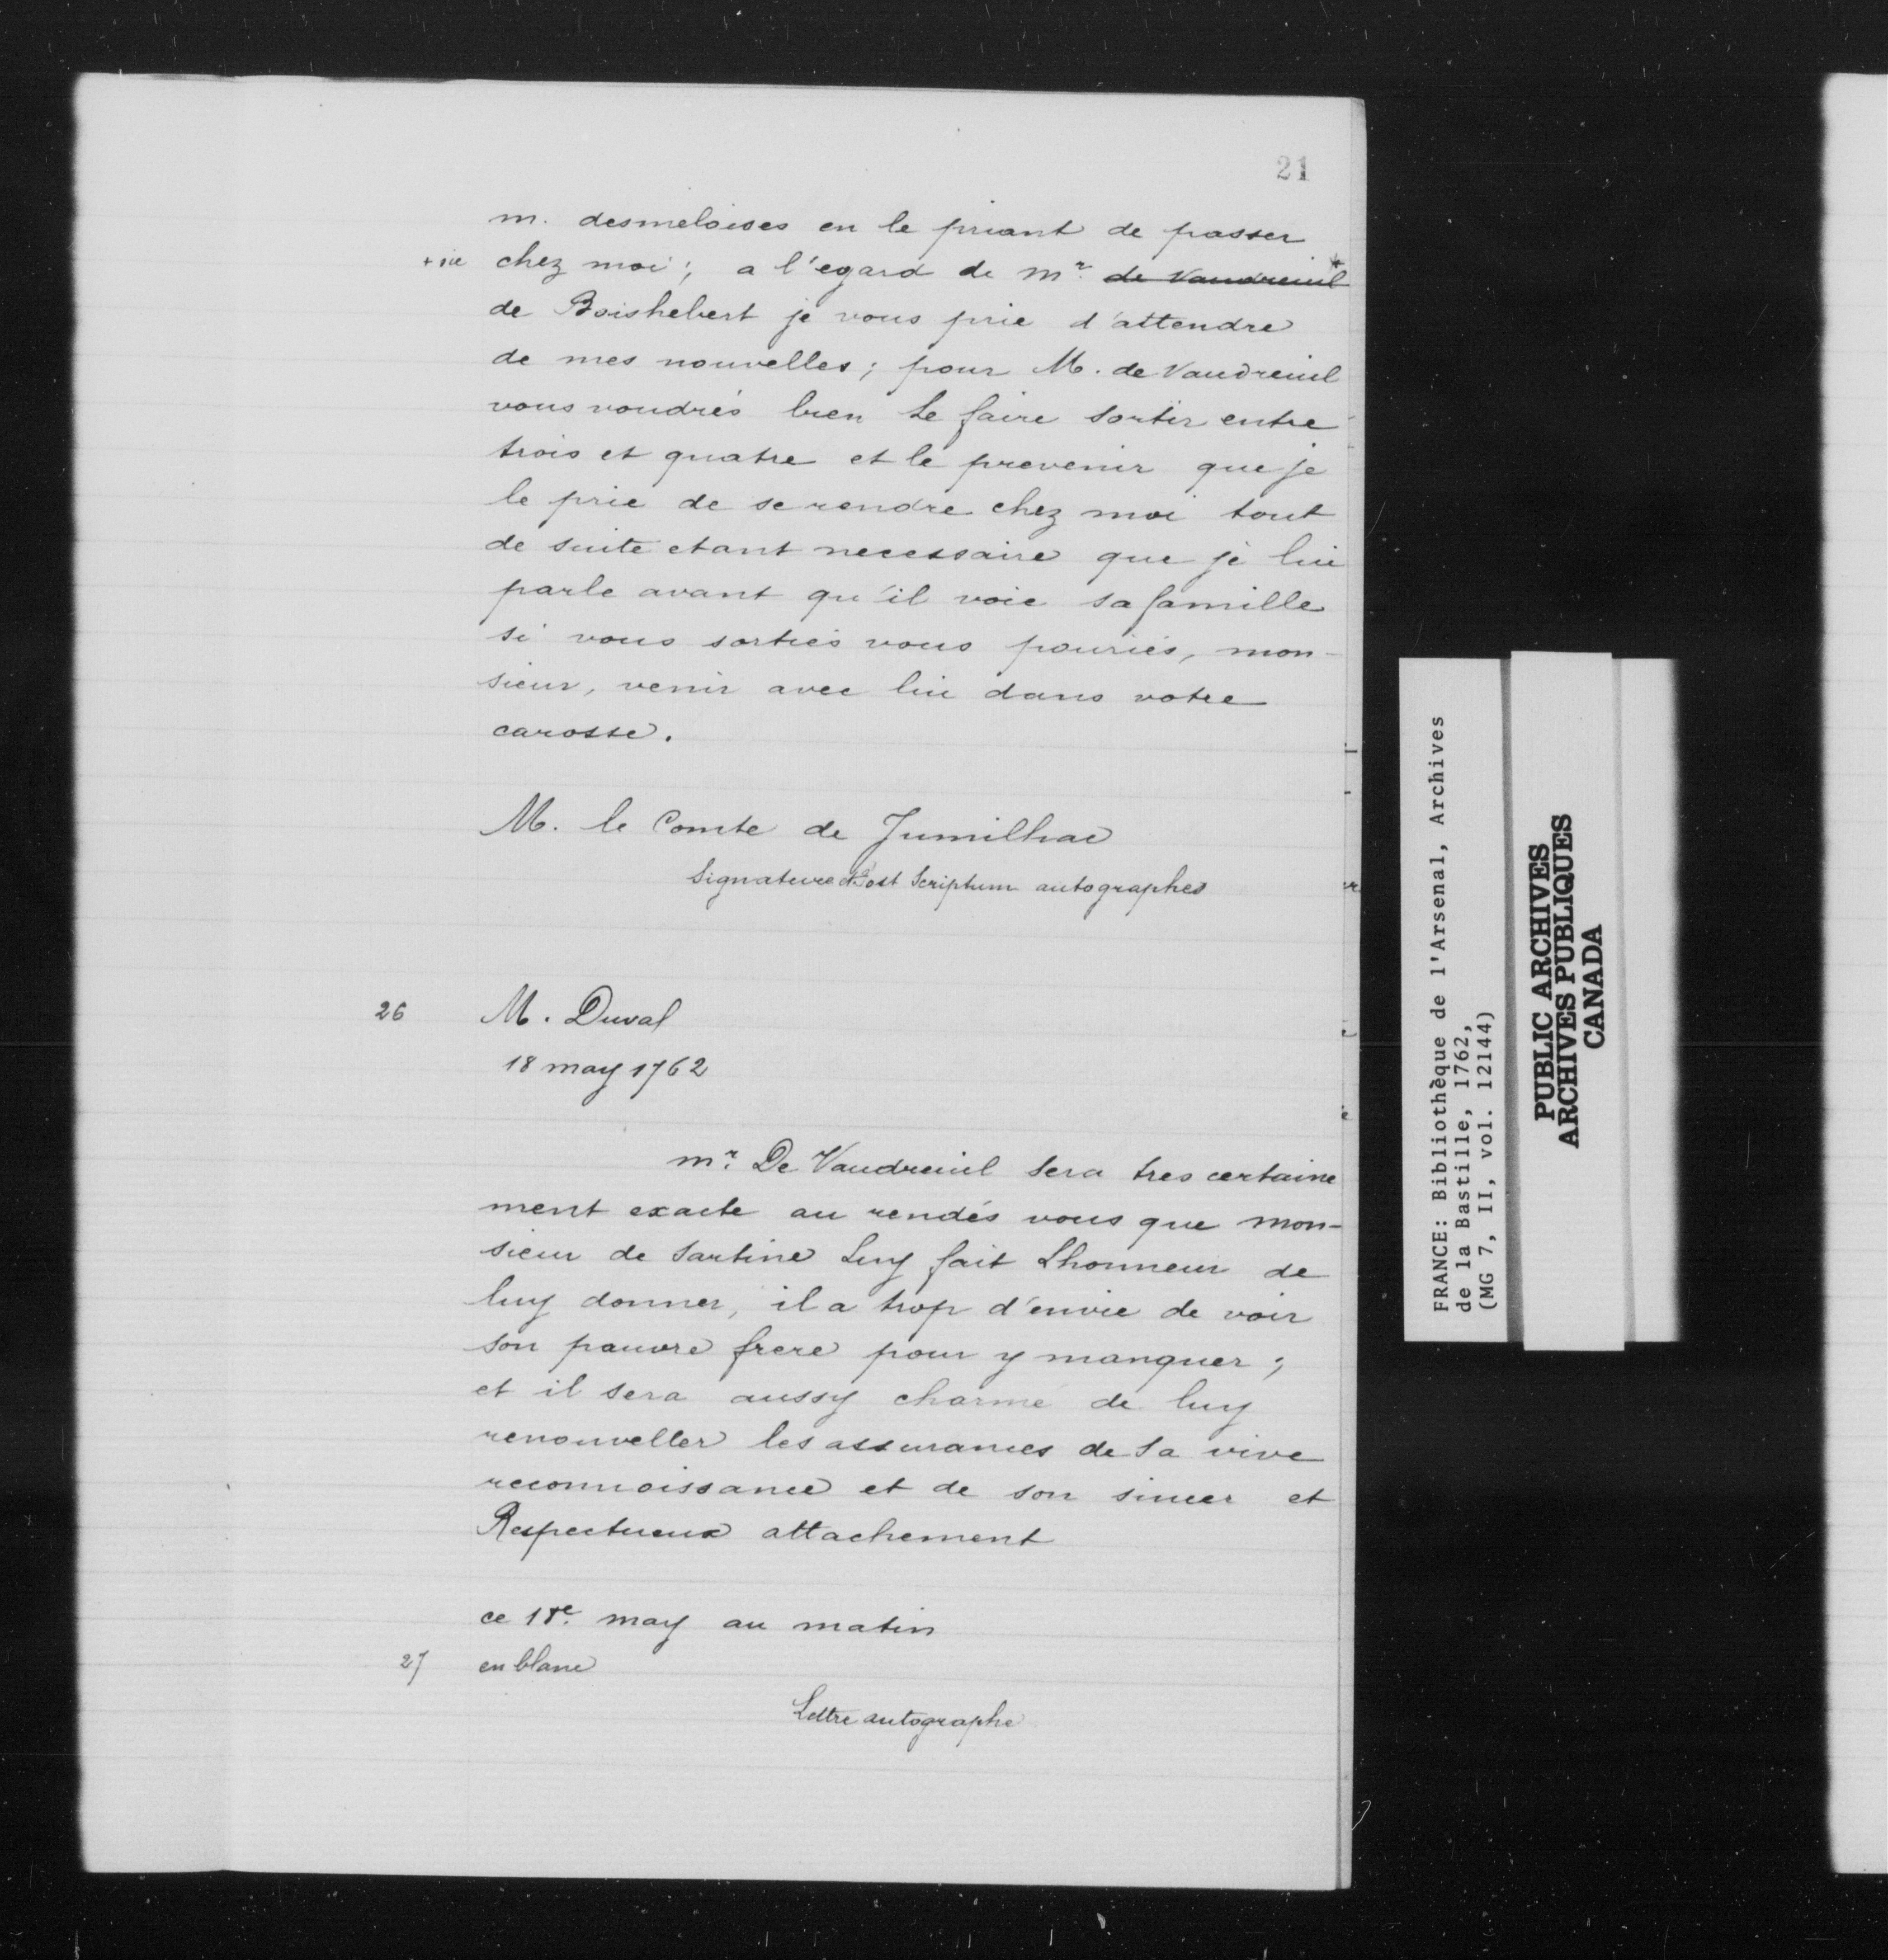 21
m. desmeloises en le priant de passer
+ sic chez moi; a l'egard de mr. de Vaudreuil *
de Boishebert je vous prie d'attendre
de mes nouvelles; pour M. de Vaudreuil
vous voudrés bien le faire sortir entre
trois et quatre et le prevenir que je
le prie de se rendre chez moi tout
de suite etant necessaire que je lui
parle avant qu'il voie sa famille
si vous sortiés vous pouriés, mon-
sieur, venir avec lui dans votre
carosse.
M. le Comte de Jumilhac
Signature et Post Scriptum autographes
26 M. Duval
18 may 1762
mr. De Vaudreuil sera tres certaine
ment exacte au rendés vous que mon-
sieur de Sartine Luy fait Lhonneur de
luy donner, il a trop d'envie de voir
son pauvre frere pour y manquer;
et il sera aussy charmé de luy
renouveller les assurances de sa vive
reconnoissance et de son sincer et
Respectueux attachement
ce 18e. may au matin
27 en blanc
Lettre autographe
FRANCE: Bibliothèque de l'Arsenal, Archives
de la Bastille, 1762,
(MG 7, II, vol. 12144)
PUBLIC ARCHIVES
ARCHIVES PUBLIQUES
CANADA